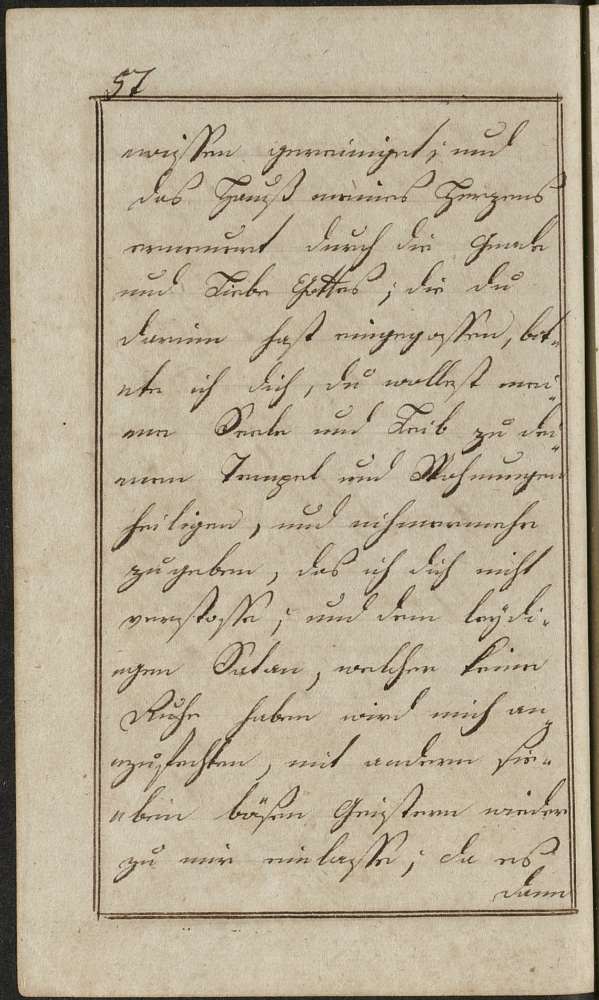 57
wissen gereiniget; und
das Hauß meines Herzens
erneuert durch die Gnade
und Liebe Gottes; die du
darinn hast eingegossen, bit-
te ich dich, du wollest mei-
ne Seele und Leib zu dei-
nem Tempel und Wohnungen
heiligen, und nihmermehr
zugeben, das ich dich nicht
verstosse; und dem leydi-
gen Satan, welcher keine
Ruhe haben wird mich an-
zufechten, mit andern sie-
ben bösen Geistern wieder
zu mir einlasse; da es
dann